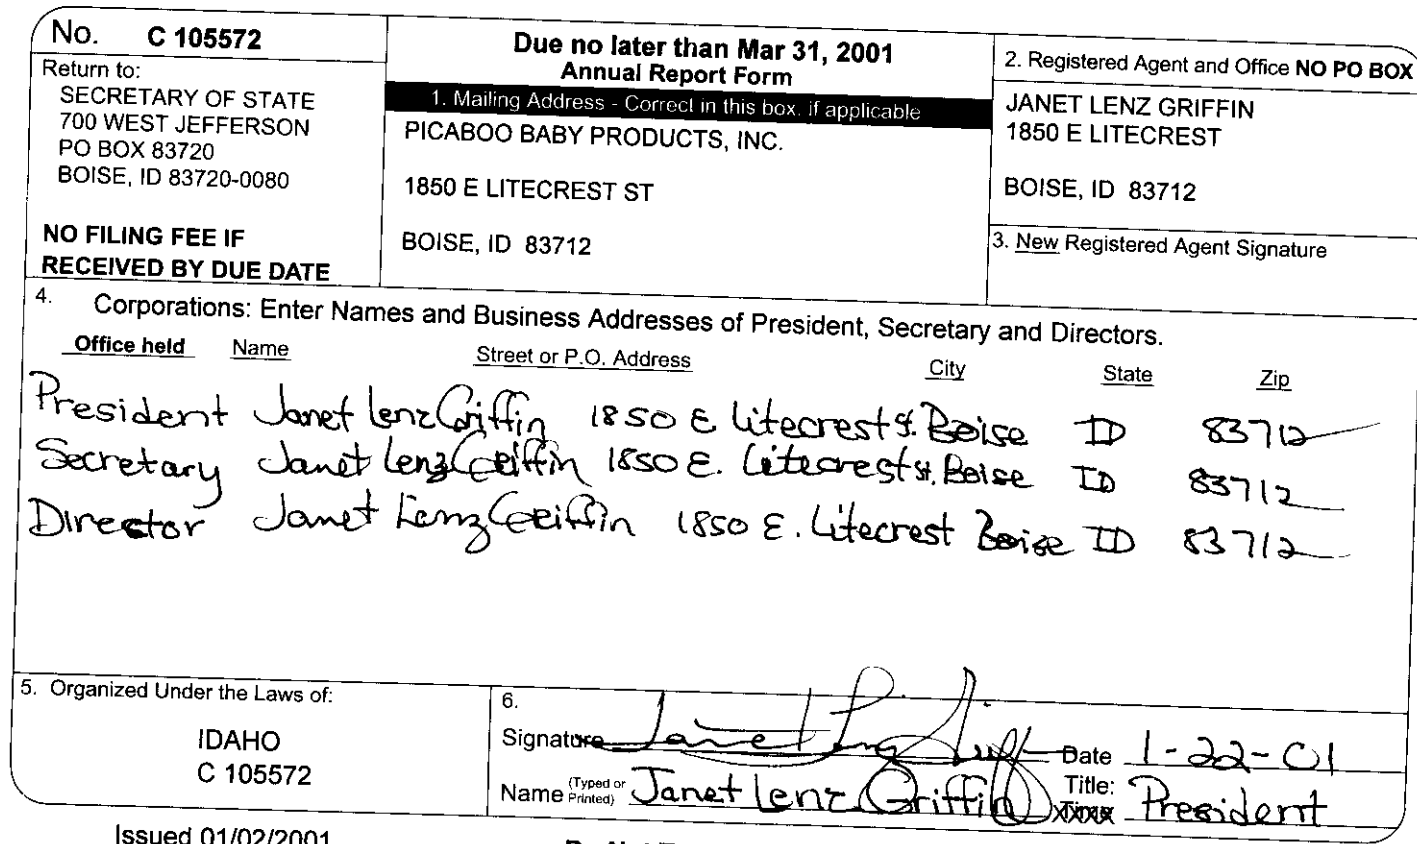 No. C 105572
Return to:
SECRETARY OF STATE
700 WEST JEFFERSON
PO BOX 83720
BOISE, ID 83720-0080
NO FILING FEE IF
RECEIVED BY DUE DATE
Due no later than Mar 31, 2001
Annual Report Form
1. Mailing Address - Correct in this box, if applicable
PICABOO BABY PRODUCTS, INC.
1850 E LITECREST ST
BOISE, ID 83712
2. Registered Agent and Office NO PO BOX
JANET LENZ GRIFFIN
1850 E LITECREST
BOISE, ID 83712
3. New Registered Agent Signature
4. Corporations: Enter Names and Business Addresses of President, Secretary and Directors.
Office held Name Street or P.O. Address City State Zip
President Janet Lenz Griffin 1850 E Litecrest St. Boise ID 83712
Secretary Janet Lenz Griffin 1850 E. Litecrest St. Boise ID 83712
Director Janet Lenz Griffin 1850 E. Litecrest Boise ID 83712
5. Organized Under the Laws of:
IDAHO
C 105572
6.
Signature Janet Lenz Griffin Date 1-22-01
Name (Typed or Printed) Janet Lenz Griffin Title: President
Issued 01/02/2001